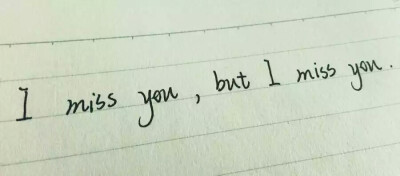 I miss you, but I miss you.